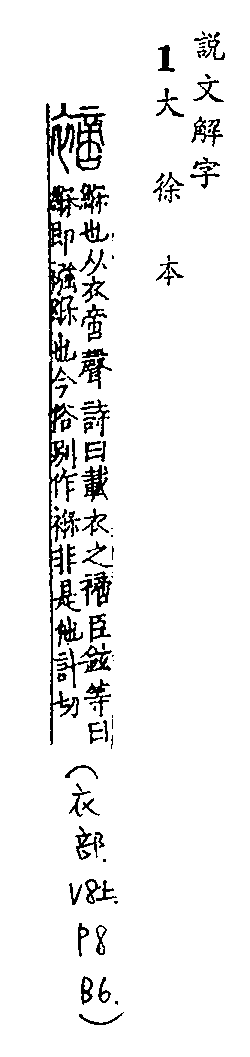 説文解字
1大徐本
緥也从衣啻聲詩曰載衣之𧝐臣鉉等曰
緥即襁緥也今俗别作褓非是他計切
(衣部.V8上.P8B6.)